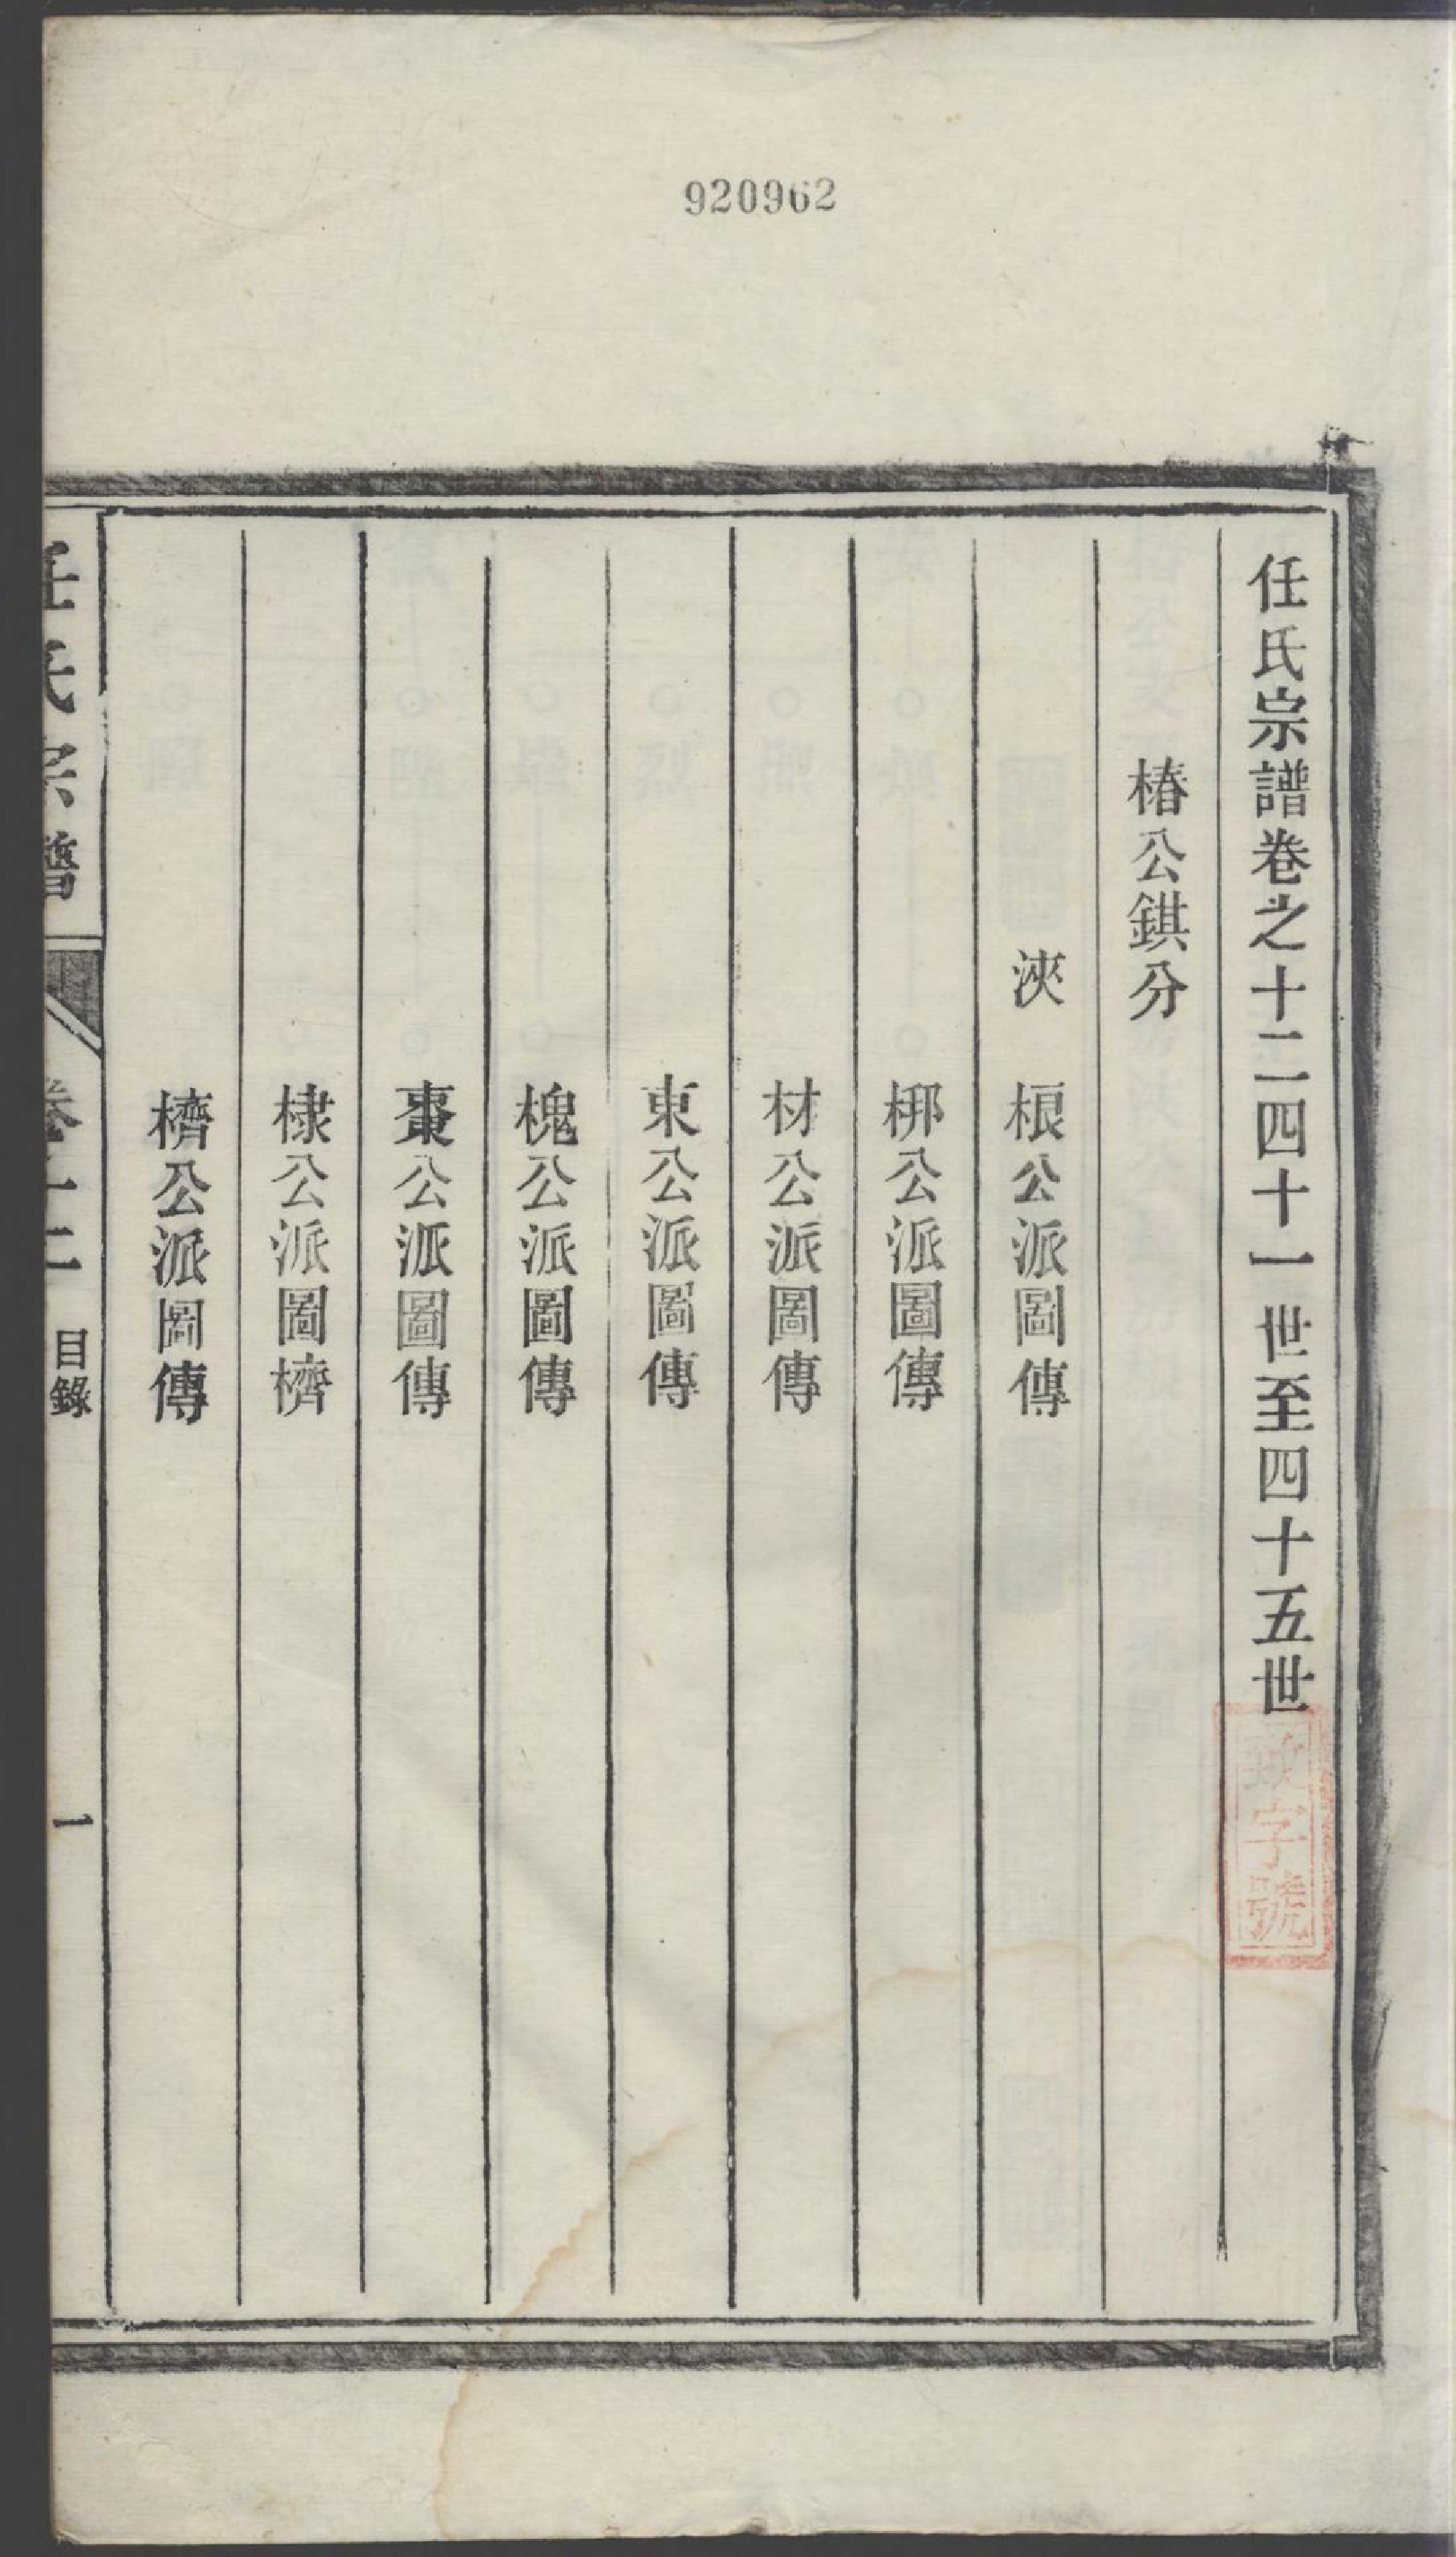 920962
任氏宗譜卷之十二四十一世至四十五世
致字號
椿公錤分
浹 桹公派圖傳
梛公派圖傳
材公派圖傳
東公派圖傳
槐公派圖傳
棗公派圖傳
棣公派圖櫅
櫅公派圖傳
任氏宗譜 卷十二 目錄 一